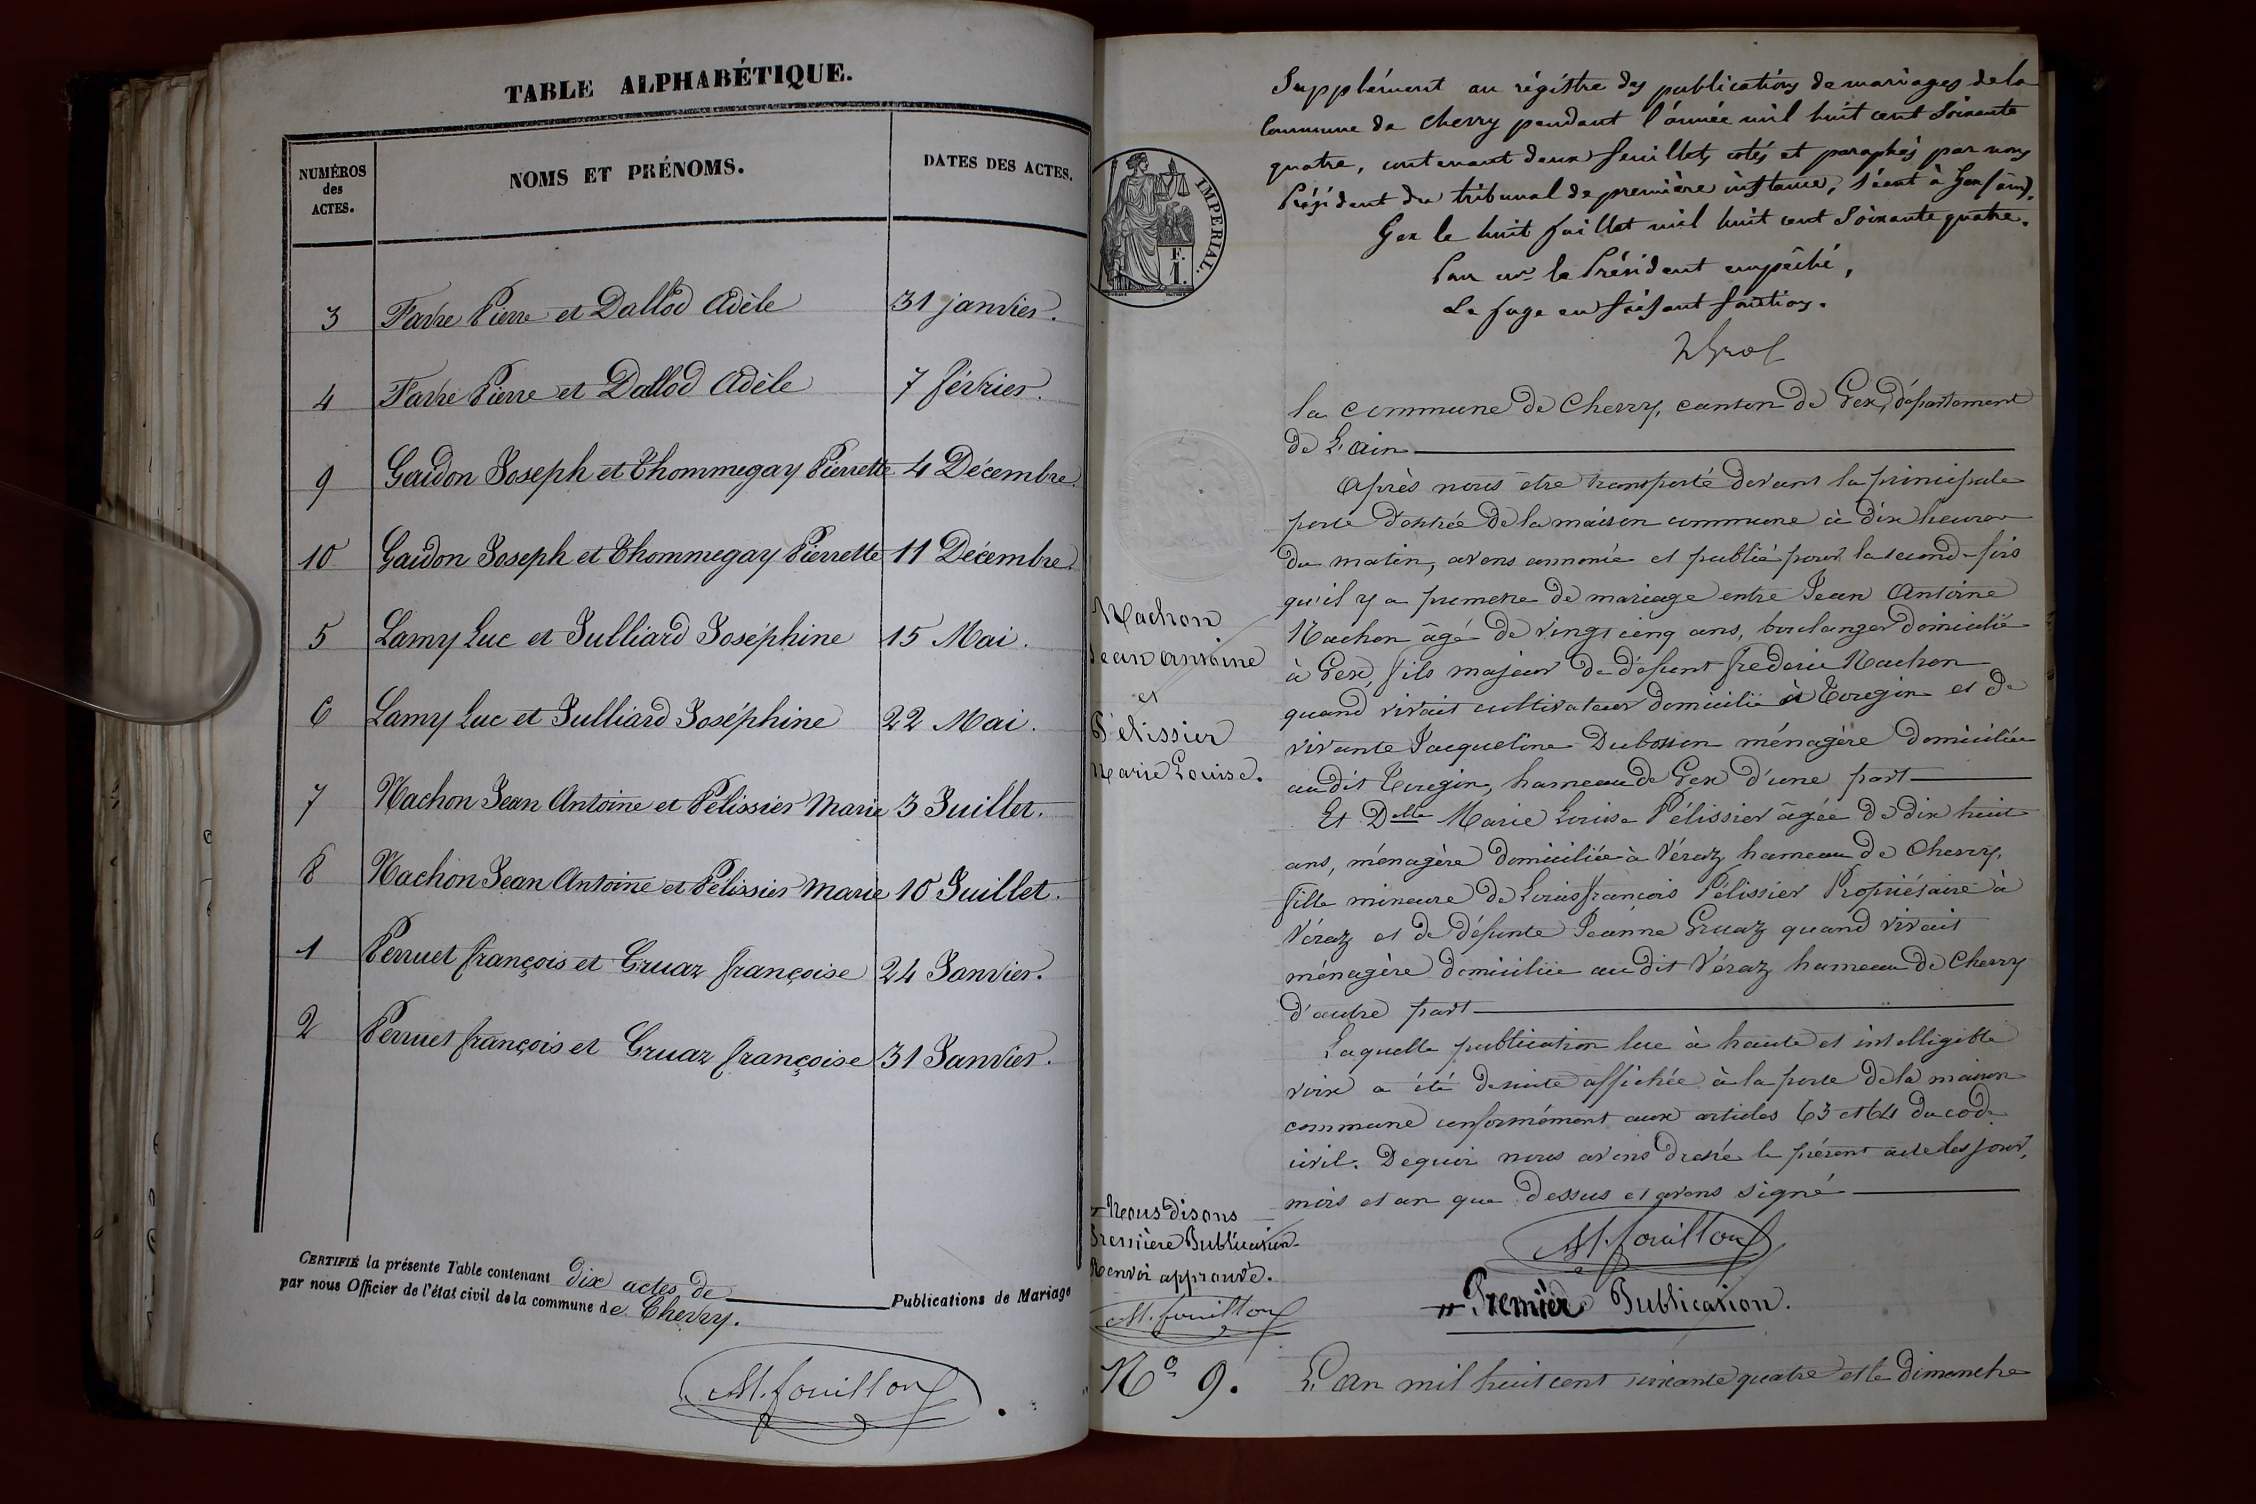 TABLE ALPHABÉTIQUE.
NUMÉROS
des
ACTES.
NOMS ET PRÉNOMS.
DATES DES ACTES.
3 Favre Pierre et Dallod Adèle 31 janvier.
4 Favre Pierre et Dallod Adèle 7 février.
9 Gaidon Joseph et Thommegay Pierrette 4 Décembre.
10 Gaidon Joseph et Thommegay Pierrette 11 Décembre.
5 Lamy Luc et Julliard Joséphine 15 Mai.
6 Lamy Luc et Julliard Joséphine 22 Mai.
7 Nachon Jean Antoine et Pélissier Marie 3 Juillet.
8 Nachon Jean Antoine et Pélissier Marie 10 Juillet.
1 Perruet françois et Gruaz françoise 24 Janvier.
2 Perruet françois et Gruaz françoise 31 Janvier.
CERTIFIÉ la présente Table contenant dix actes de Publications de Mariage
par nous Officier de l'état civil de la commune de Chevry.
M. fouilloux
Supplément au régistre des publications de mariages de la
Commune de Chevry pendant l'année mil huit cent Soixante
quatre, contenant deux feuillets cotés et paraphés par nous
Président du tribunal de première instance, séant à Gex (ain).
Gex le huit juillet mil huit cent Soixante quatre.
Pour mr le Président empêché,
Le juge en faisant fonctions.
IMPERIAL.
F.
1.
la commune de Chevry, canton de Gex, département
de L'ain
Après nous être transporté devant la principale
porte d'entrée de la maison commune à dix heures
du matin, avons annoncé et publié pour la second fois
qu'il y a promesse de mariage entre Jean Antoine
Nachon âgé de vingt cinq ans, boulanger domicilié
à Gex, fils majeur de défunt frederic Nachon
quand vivait cultivateur domicilié à Tougin et de
vivante Jacqueline Dubosson ménagère domiciliée
au dit Tougin, hameau de Gex d'une part
Et Delle Marie Louise Pélissier âgée de dix huit
ans, ménagère domiciliée à Véraz hameau de Chevry,
fille mineure de Louis françois Pélissier Propriétaire à
Véraz et de défunte Jeanne Gruaz quand vivait
ménagère domiciliée au dit Véraz hameau de Chevry
d'autre part
Laquelle publication lue à haute et intelligible
voix a été de suite affichée à la porte de la maison
commune conformément aux articles 63 et 64 du code
civil. De quoi nous avons dressé le présent acte les jour,
mois et an que dessus et avons signé
M. fouilloux
Nachon
Jean Antoine
et
Pélissier
Marie Louise.
Nous disons
Première Publication
Renvoi approuvé.
M. fouilloux
Première Publication.
No 9.
L'an mil huit cent soixante quatre et le dimanche